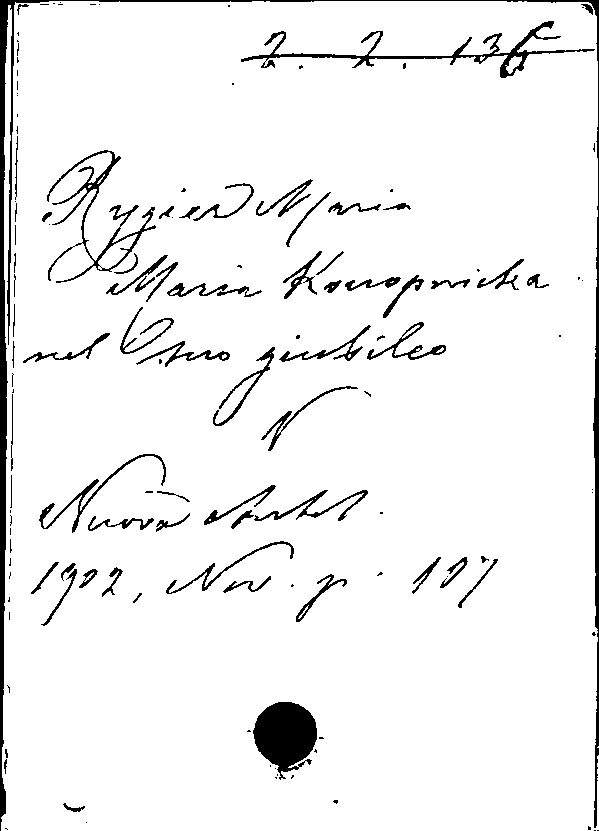 2. 2. 136
Rygier Maria
Maria Konopnicka
nel suo giubileo
N
Nuova Antol.
1902, Nov. p. 107